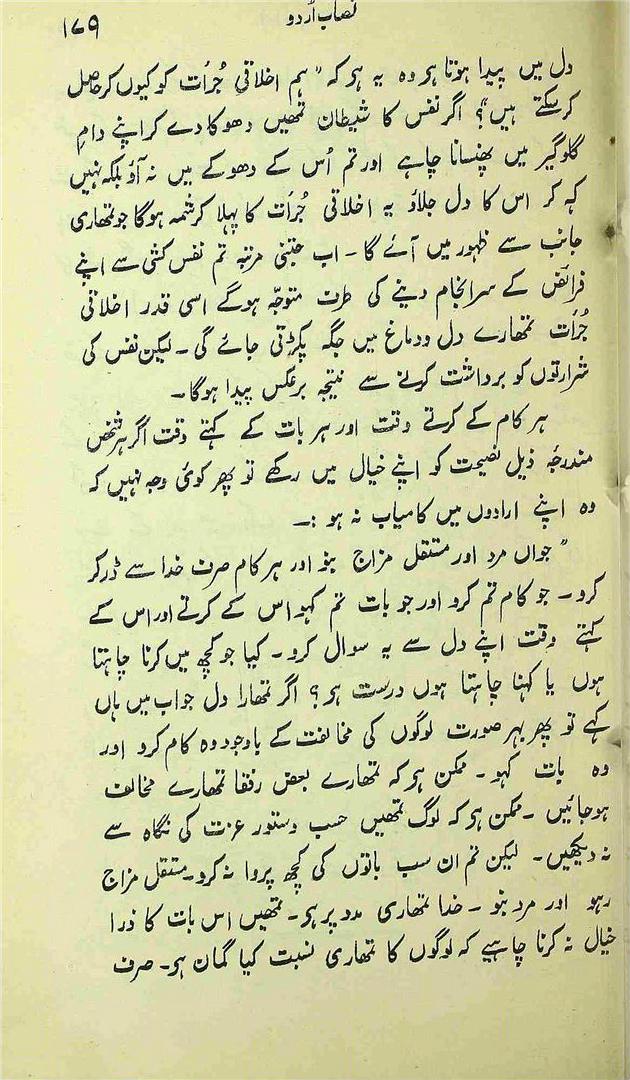 نصاب اُردو
۱۷۹
دل میں پیدا ہوتا ہی وہ یہ ہی کہ "ہم اخلاقی جُرأت کو کیوں کر حاصل
کرسکتے ہیں"؟ اگر نفس کا شیطان تمھیں دھوکا دے کر اپنے دامِ
گلوگیر میں پھنسانا چاہے اور تم اُس کے دھوکے میں نہ آؤ بلکہ نہیں
کہہ کر اس کا دل جلاؤ یہ اخلاقی جُرأت کا پہلا کرشمہ ہوگا جو تمھاری
جانب سے ظہور میں آئے گا۔ اب جتنی مرتبہ تم نفس کشی سے اپنے
فرائض کے سرانجام دینے کی طرف متوجّہ ہوگے اسی قدر اخلاقی
جُرأت تمھارے دل ودماغ میں جگہ پکڑتی جائے گی۔ لیکن نفس کی
شرارتوں کو برداشت کرنے سے نتیجہ برعکس پیدا ہوگا۔
ہر کام کے کرتے وقت اور ہر بات کے کہتے وقت اگر ہر شخص
مندرجہ ذیل نصیحت کو اپنے خیال میں رکھے تو پھر کوئی وجہ نہیں کہ
وہ اپنے ارادوں میں کامیاب نہ ہو :۔
"جواں مرد اور مستقل مزاج بنو اور ہر کام صرف خدا سے ڈر کر
کرو۔ جو کام تم کرو اور جو بات تم کہو اس کے کرتے اور اس کے
کہتے وقت اپنے دل سے یہ سوال کرو۔ کیا جو کچھ میں کرنا چاہتا
ہوں یا کہنا چاہتا ہوں درست ہی؟ اگر تمھارا دل جواب میں ہاں
کہے تو پھر بہر صورت لوگوں کی مخالفت کے باوجود وہ کام کرو اور
وہ بات کہو۔ ممکن ہی کہ تمھارے بعض رفقا تمھارے مخالف
ہوجائیں۔ ممکن ہی کہ لوگ تمھیں حسب دستور عزت کی نگاہ سے
نہ دیکھیں۔ لیکن تم ان سب باتوں کی کچھ پروا نہ کرو۔ مستقل مزاج
رہو اور مرد بنو۔ خدا تمھاری مدد پر ہی۔ تمھیں اس بات کا ذرا
خیال نہ کرنا چاہیے کہ لوگوں کا تمھاری نسبت کیا گمان ہی۔ صرف